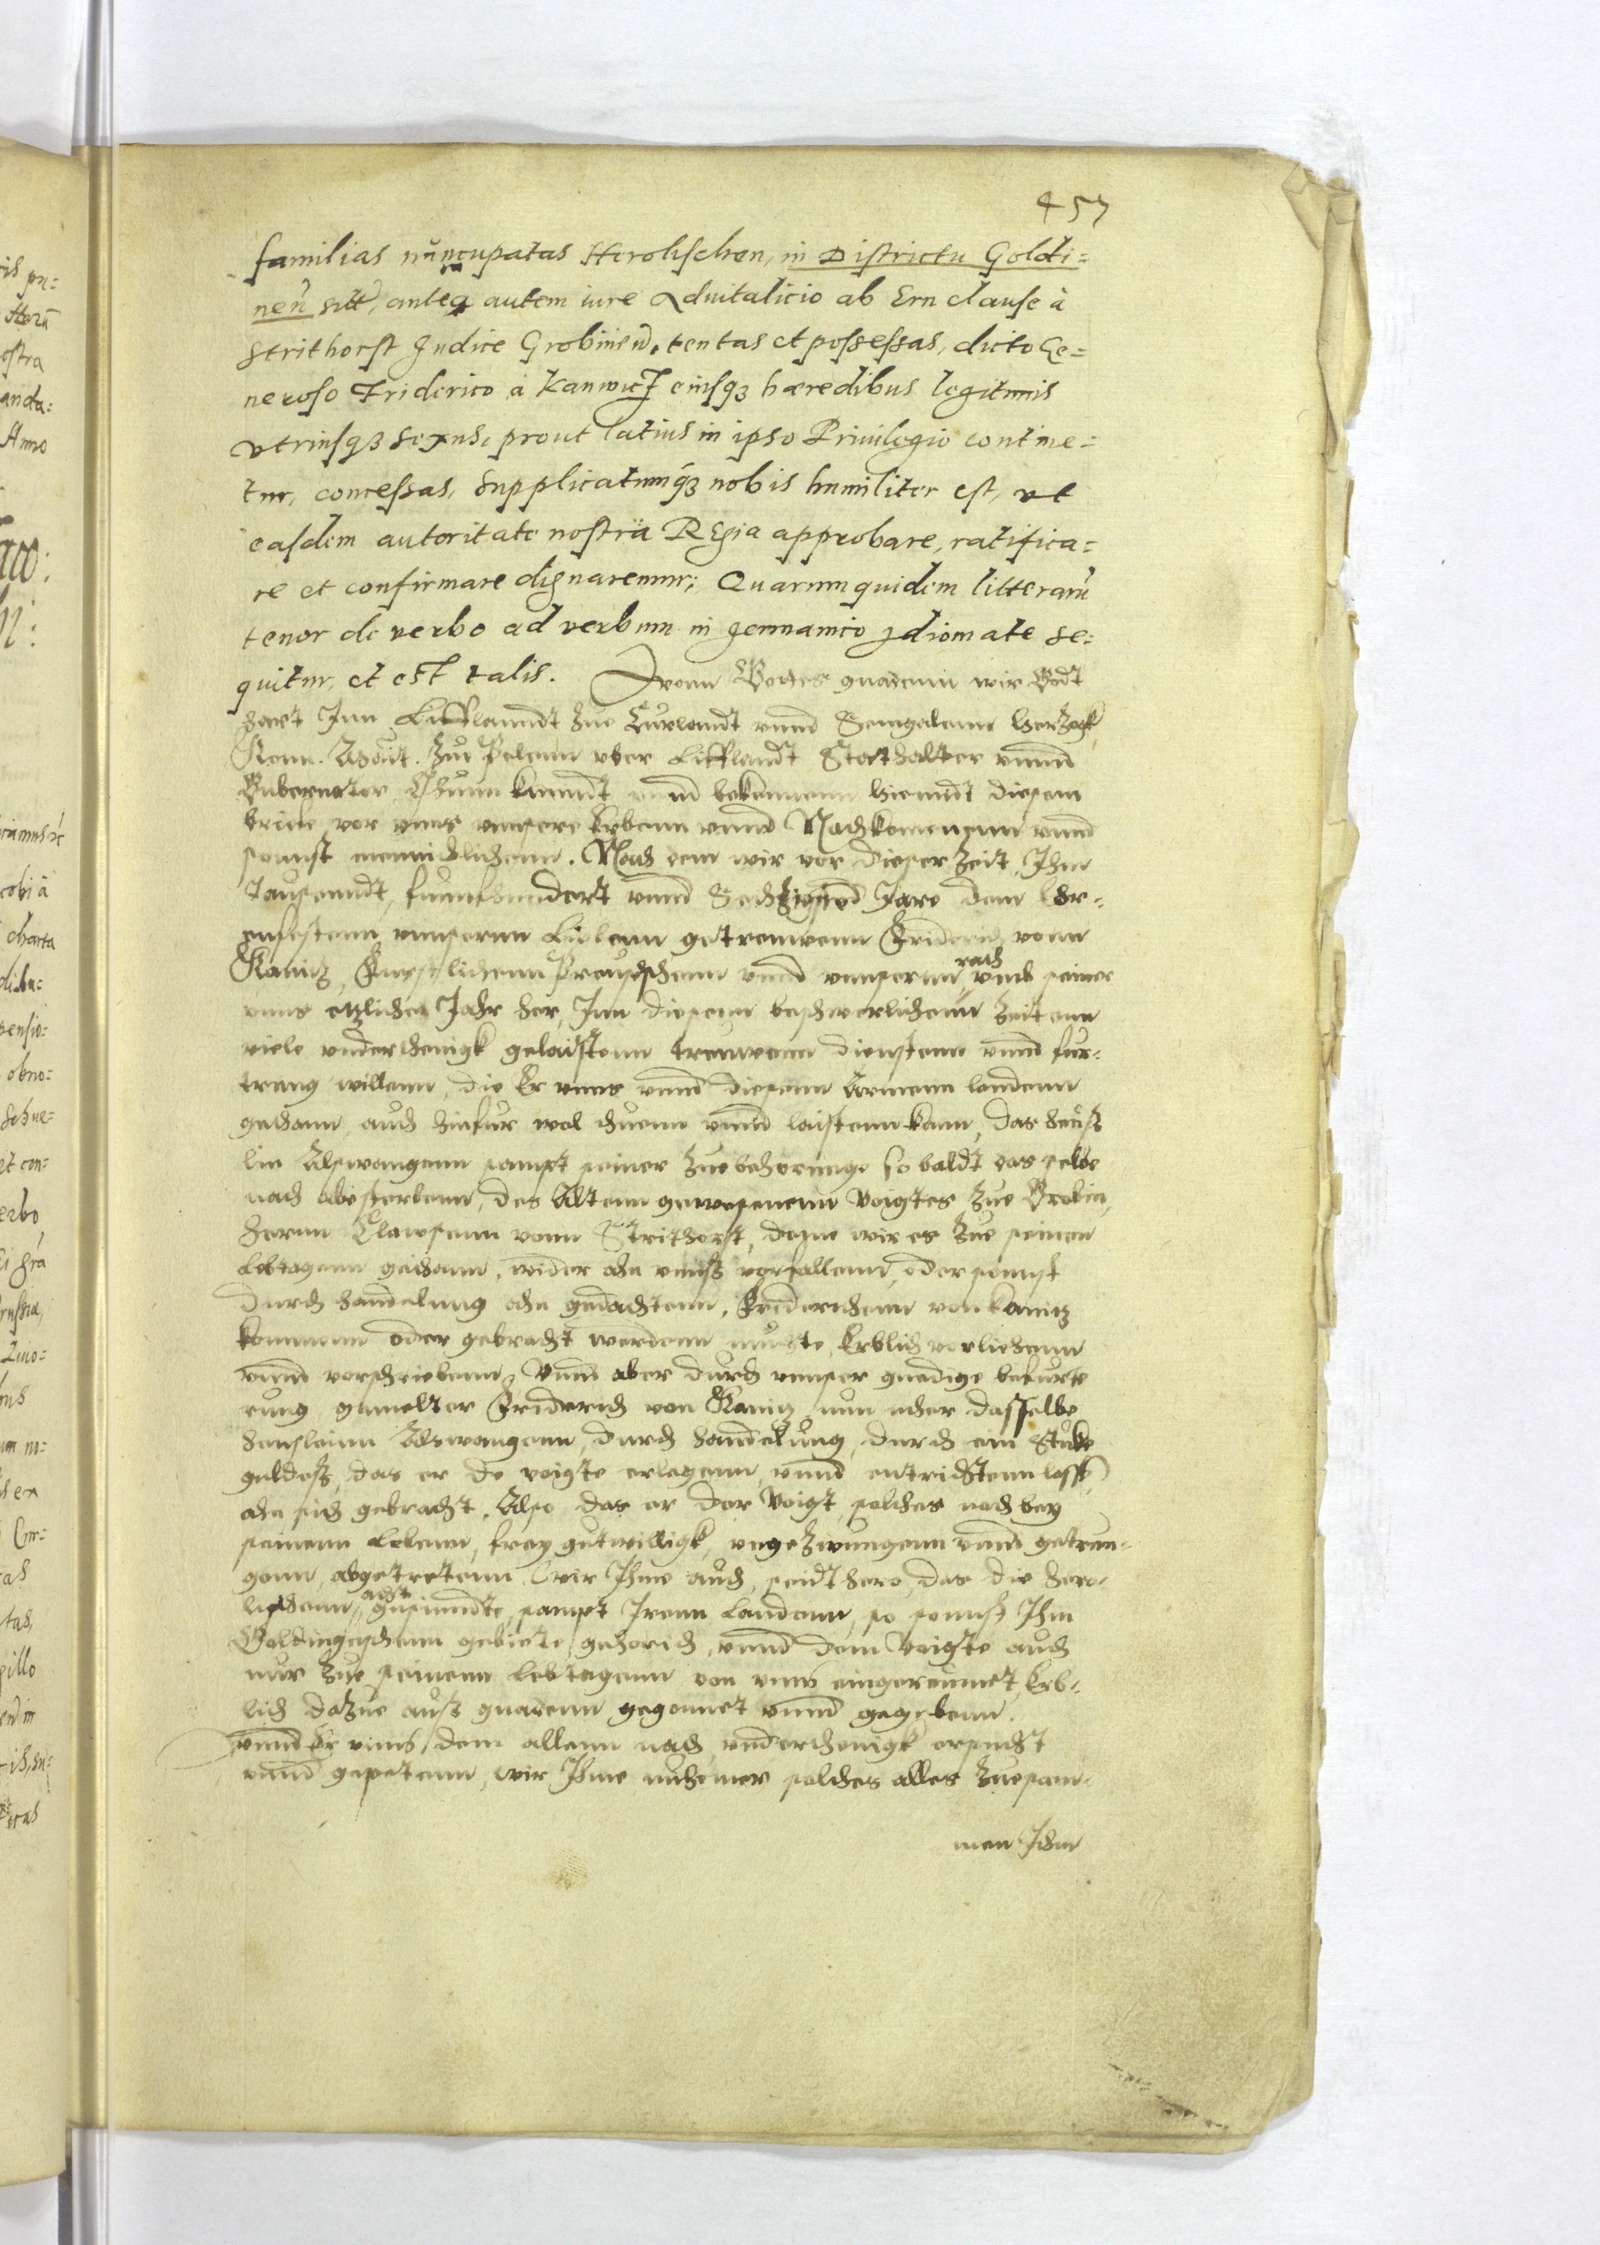 457
familias nuncupatas Herolischen, in Districtu Goldi=
neñ sitt, anteq autem iure Aduitalicio ab Ern Clause à
Strithorst Judice Grobineñ, tentas et possessas, dicto Ge=
neroso Friderico à Kanwicz eiusqz hæredibus legitimis
vtriusqz sexus, prout latius in ipso Priuilegio contine=
tur, concessas, Supplicatumqz nobis humiliter est, vt
easdem autoritate nostra Regia approbare, ratifica=
re et confirmare dignaremur; Quarum quidem litterarū
tenor de verbo ad verbum in germanico Idiomate se=
quitur, et est talis. Vonn Gottes gnadenn wir Godt
hart Inn Lifflanndt zue Curlandt vnnd Semgalenn Herzogk,
Konn. Zu Polenn vber Lifflandt Stathalter vnnd
Gubernator, Thuen kunndt vnnd bekennenn hiemidt diesem
brieue vor vnns vnsere Erbenn vnnd Nachkomenenn vnnd
sonnst menniglichenn. Nach dem wir vor dieser Zeit, Ihm
Tausenndt, funnfhundert vnnd Sechzigsted Jare dem Ehr=
enfestenn vnnsernn Liebenn getrewenn Friderich vonn
Kanitz, Furstlichenn Preuschschenn vnnd vnnsernn rath vmb seiner
vnns etzliche Jahr her, Inn diesenn beschwerlichenn Zeitenn
viele vnderthenigk gelaistenn trewenn dienstenn vnnd fur=
trang willenn, die Er vnns vnnd diesenn Armenn landenn
gethann, auch hinfur wol thuenn vnnd laistenn kann, das heuß
lin Alswangenn sampt seiner Zuebehörunge so baldt das selbe
nach absterbenn, des Altenn gewesenenn Voigtes zue Grobin,
herrnn Clawsenn vonn Strithorst, deme wir es zue seinen
Lebtagenn gethann, wider ahn vnnß vorfallenn, oder sonnst
durch handelung ahn gedachtenn, Friderichenn von Kanitz
kommenn oder gebracht werdenn muchte, Erblich vorliehenn
vnnd vorschriebenn, Vnnd aber durch vnnser gnedige befurde
rung gemelter Friderich von Kanitz nun mher dasselbe
heuslein Alswangenn, durch handelung, durch ein Stuke
geldeß, das er de voigte erlegenn, vnnd entrichtenn lassē,
ahn sich gebracht, Also das er der Voigt, solches noch bey
seinem Lebenn, frey gutwilligk, vngezwungenn vnnd getrun=
genn, abgetretenn. Wir Ihme auch, seidt hero, das die Hero=
lischenn acht gesinndte, sampt Irenn Landenn, so sonnst Ihn
Goldingischenn gebiete gehorich, vnnd dem Voigte auch
nur zue seinenn lebtagenn von vnns eingereumet, Erb=
lich dazue auß gnadenn gegonnet vnnd gegebenn.
Vnnd Er vnns, dem allenn nach vnderthenigk ersucht
vnnd gepetenn, wir Ihme nuhmer solches alles zuesam=
men Ihm